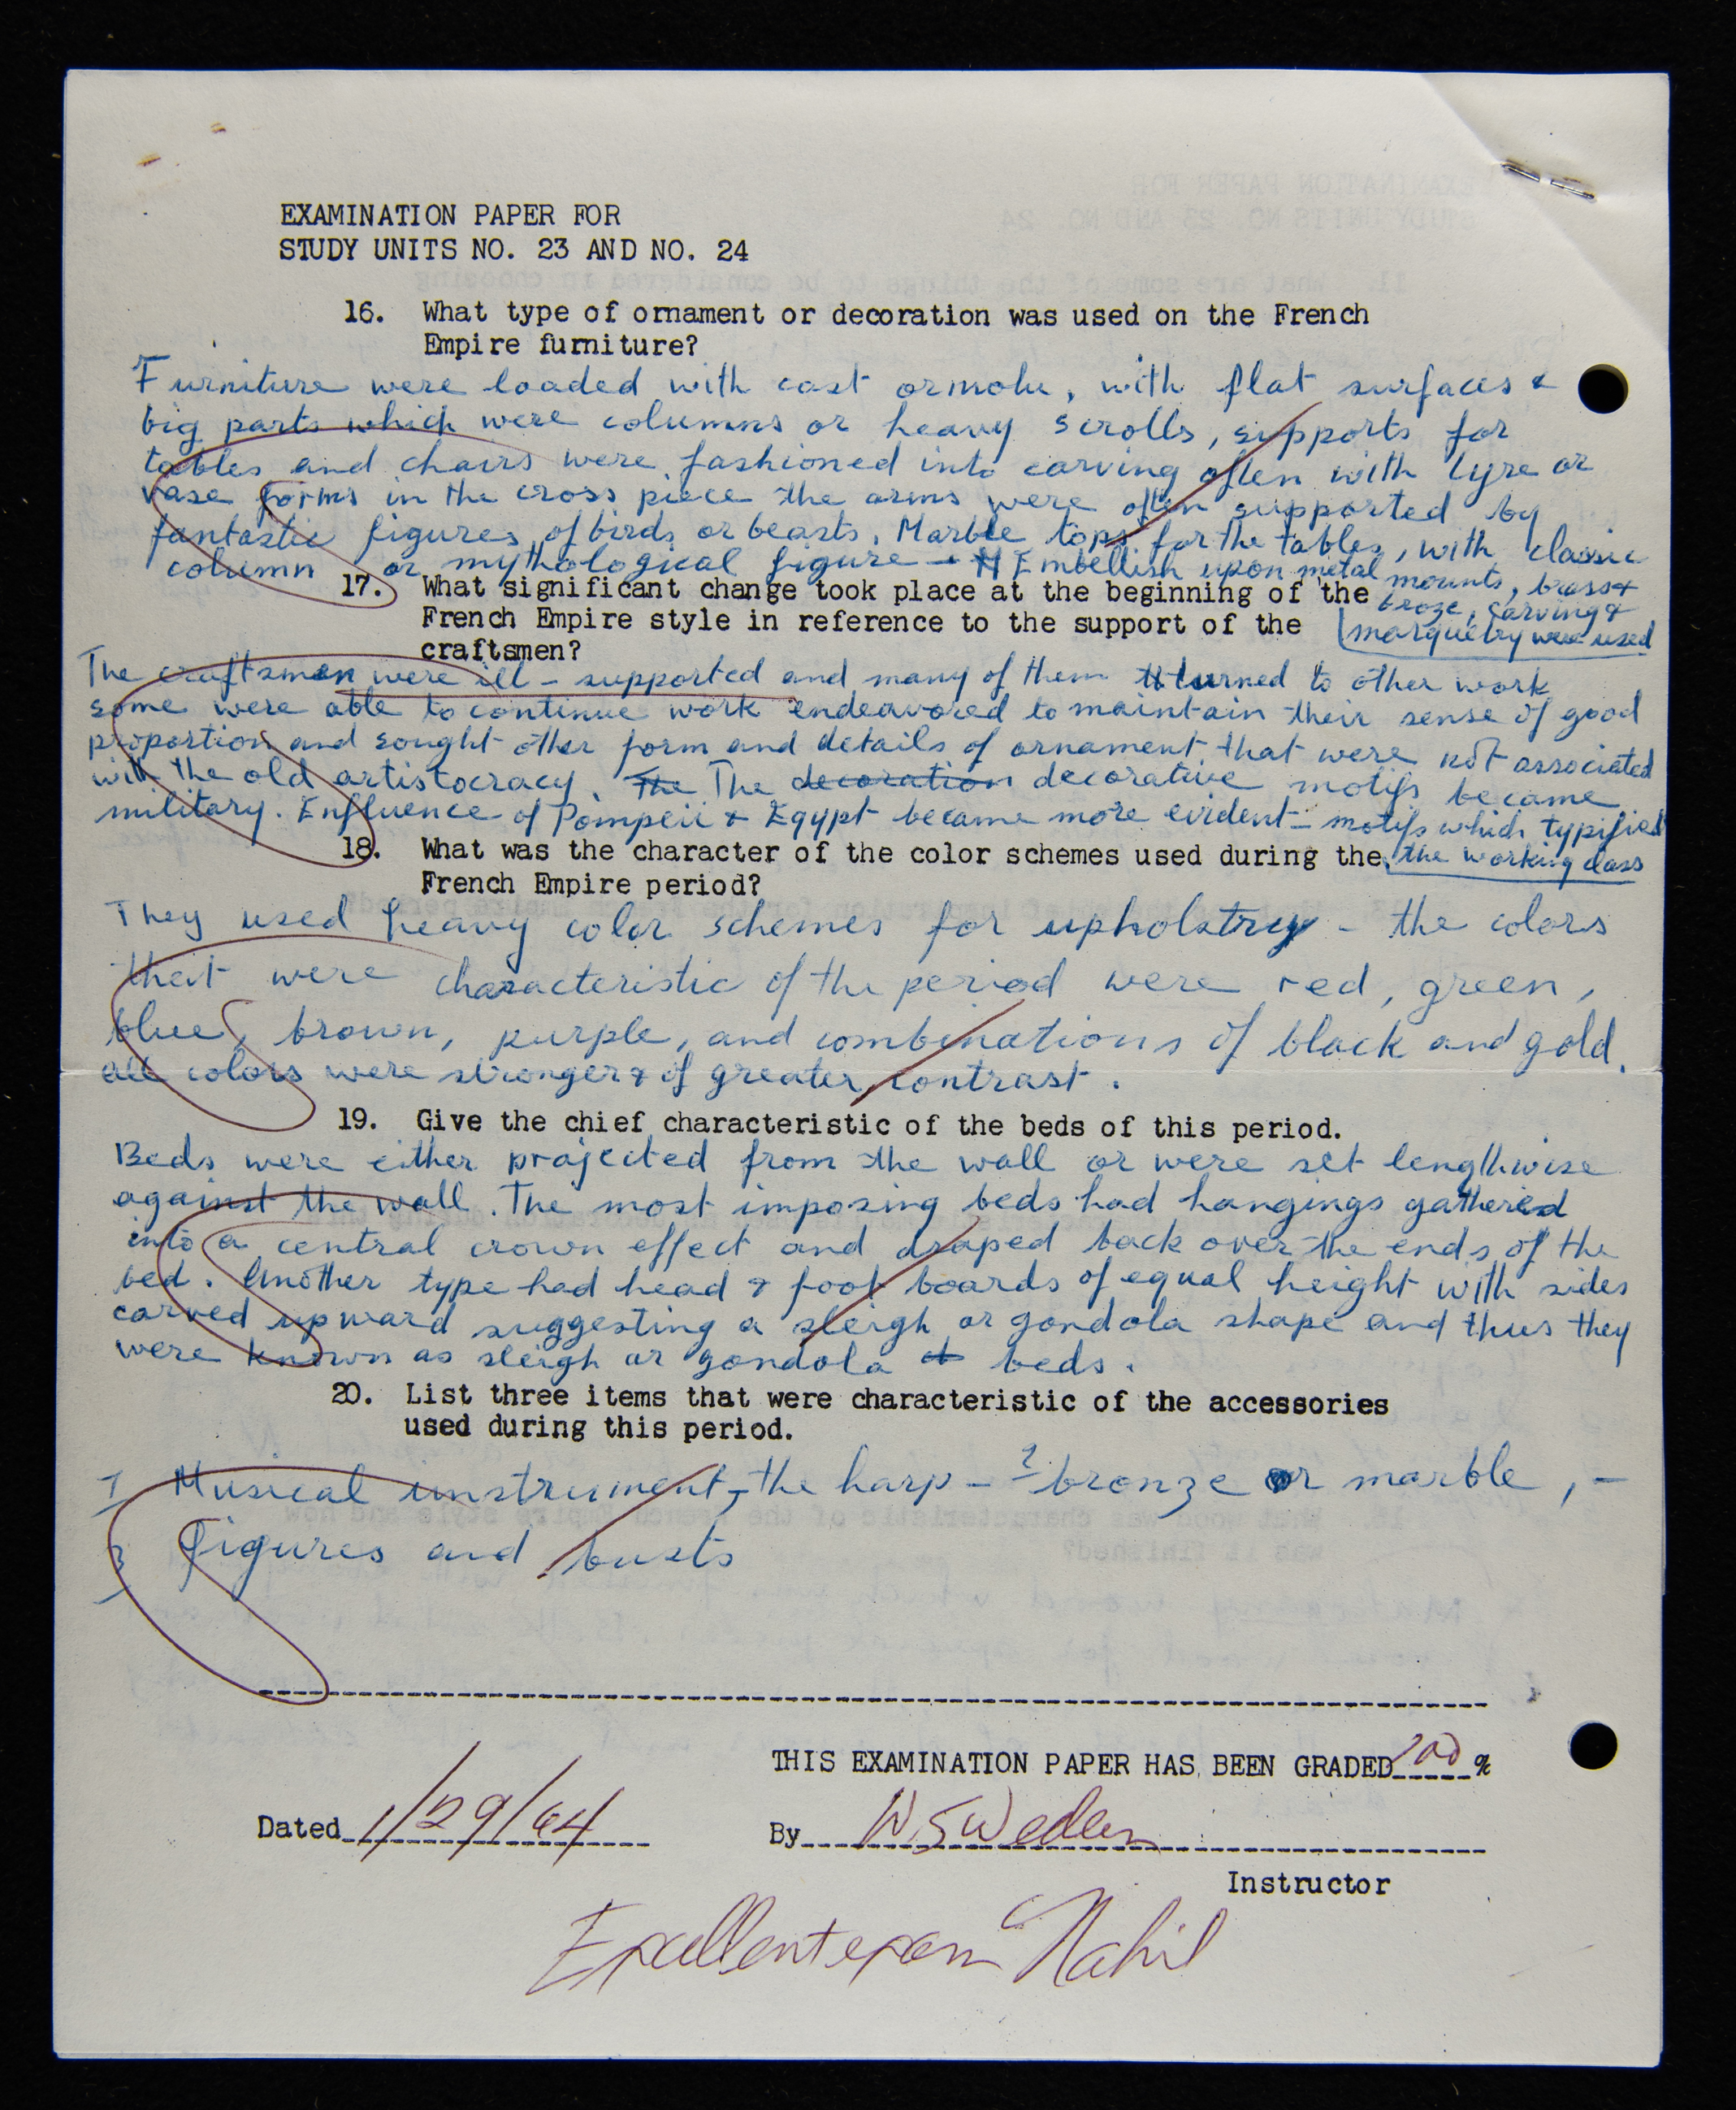 EXAMINATION PAPER FOR
STUDY UNITS NO. 23 AND NO. 24
16. What type of ornament or decoration was used on the French
Empire furniture?
Furniture were loaded with cast ormolu, with flat surfaces &
big parts which were columns or heavy scrolls, supports for
tables and chairs were fashioned into carving often with lyre or
vase forms in the cross piece the arms were often supported by
fantastic figures of birds or beasts. Marble tops for the tables, with classic
column or mythological figure - Embellish upon metal mounts, brass &
broze, carving &
marquetry were used
17. What significant change took place at the beginning of the
French Empire style in reference to the support of the
craftsmen?
The craftsmen were ill-supported and many of them turned to other work
some were able to continue work endeavored to maintain their sense of good
proportion and sought other form and details of ornament that were not associated
with the old artistocracy. The The decoration decorative motifs became
military. Enfluence of Pompeii & Egypt became more evident - motifs which typified
the working class
18. What was the character of the color schemes used during the
French Empire period?
They used heavy color schemes for upholstry - the colors
that were characteristic of the period were red, green,
blue, brown, purple, and combinations of black and gold.
all colors were stronger & of greater contrast.
19. Give the chief characteristic of the beds of this period.
Beds were either projected from the wall or were set lengthwise
against the wall. The most imposing beds had hangings gathered
into a central crown effect and draped back over the ends of the
bed. Another type had head & foot boards of equal height with sides
carved upward suggesting a sleigh or gondola shape and thus they
were known as sleigh or gondola beds.
20. List three items that were characteristic of the accessories
used during this period.
1 Musical instrument, the harp - 2 bronze or marble, -
3 Figures and busts
THIS EXAMINATION PAPER HAS BEEN GRADED 100 %
Dated 1/29/64 By
Instructor
Excellent exam Nahil